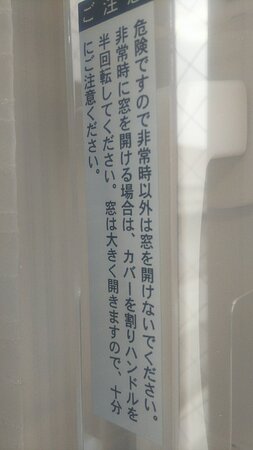 ご注意
危険ですので非常時以外は窓を開けないでください。
非常時に窓を開ける場合は、カバーを割りハンドルを
半回転してください。窓は大きく開きますので、十分
にご注意ください。